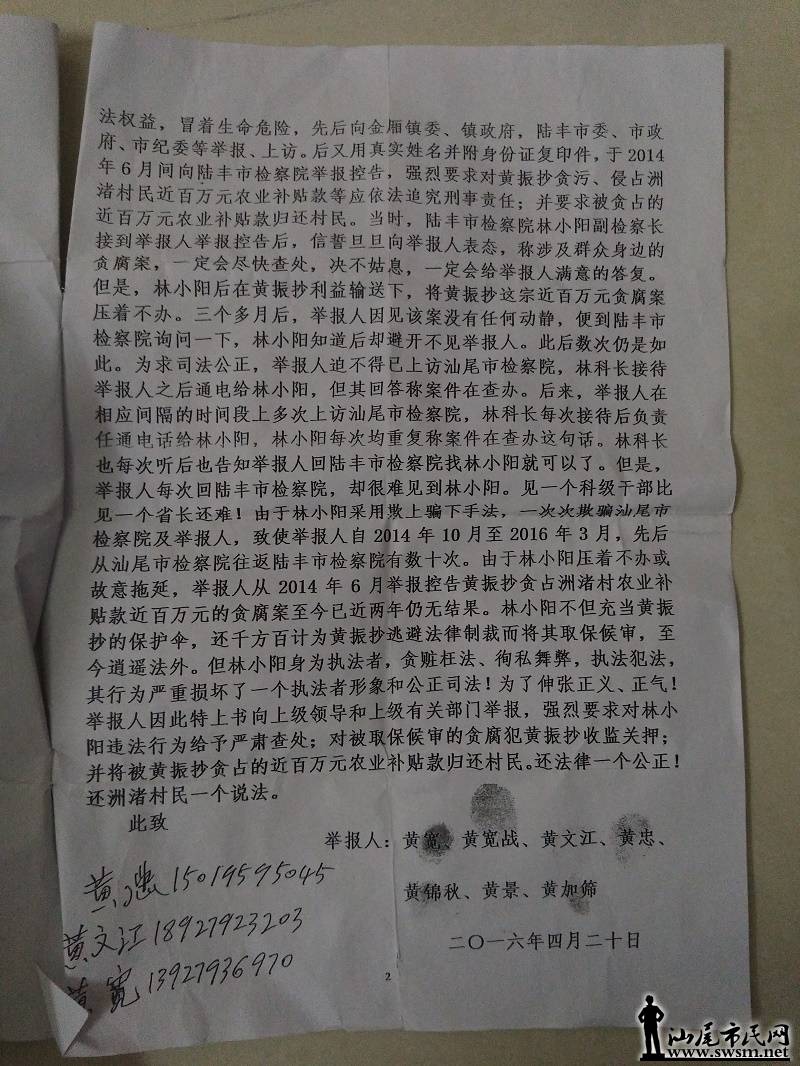 法权益，冒着生命危险，先后向金厢镇委、镇政府，陆丰市委、市政
府、市纪委等举报、上访。后又用真实姓名并附身份证复印件，于2014
年6月间向陆丰市检察院举报控告，强烈要求对黄振抄贪污、侵占洲
渚村民近百万元农业补贴款等应依法追究刑事责任；并要求被贪占的
近百万元农业补贴款归还村民。当时，陆丰市检察院林小阳副检察长
接到举报人举报控告后，信誓旦旦向举报人表态，称涉及群众身边的
贪腐案，一定会尽快查处，决不姑息，一定会给举报人满意的答复。
但是，林小阳后在黄振抄利益输送下，将黄振抄这宗近百万元贪腐案
压着不办。三个多月后，举报人因见该案没有任何动静，便到陆丰市
检察院询问一下，林小阳知道后却避开不见举报人。此后数次仍是如
此。为求司法公正，举报人迫不得已上访汕尾市检察院，林科长接待
举报人之后通电给林小阳，但其回答称案件在查办。后来，举报人在
相应间隔的时间段上多次上访汕尾市检察院，林科长每次接待后负责
任通电话给林小阳，林小阳每次均重复称案件在查办这句话。林科长
也每次听后也告知举报人回陆丰市检察院找林小阳就可以了。但是，
举报人每次回陆丰市检察院，却很难见到林小阳。见一个科级干部比
见一个省长还难！由于林小阳采用欺上骗下手法，一次次欺骗汕尾市
检察院及举报人，致使举报人自2014年10月至2016年3月，先后
从汕尾市检察院往返陆丰市检察院有数十次。由于林小阳压着不办或
故意拖延，举报人从2014年6月举报控告黄振抄贪占洲渚村农业补
贴款近百万元的贪腐案至今已近两年仍无结果。林小阳不但充当黄振
抄的保护伞，还千方百计为黄振抄逃避法律制裁而将其取保候审，至
今逍遥法外。但林小阳身为执法者，贪赃枉法、徇私舞弊，执法犯法，
其行为严重损坏了一个执法者形象和公正司法！为了伸张正义、正气！
举报人因此特上书向上级领导和上级有关部门举报，强烈要求对林小
阳违法行为给予严肃查处；对被取保候审的贪腐犯黄振抄收监关押；
并将被黄振抄贪占的近百万元农业补贴款归还村民。还法律一个公正！
还洲渚村民一个说法。
此致
举报人：黄宽、黄宽战、黄文江、黄忠、
黄锦秋、黄景、黄加筛
黄忠15019595045
黄文江18927923203
黄宽13927936970
二〇一六年四月二十日
2
汕尾市民网
www.swsm.net